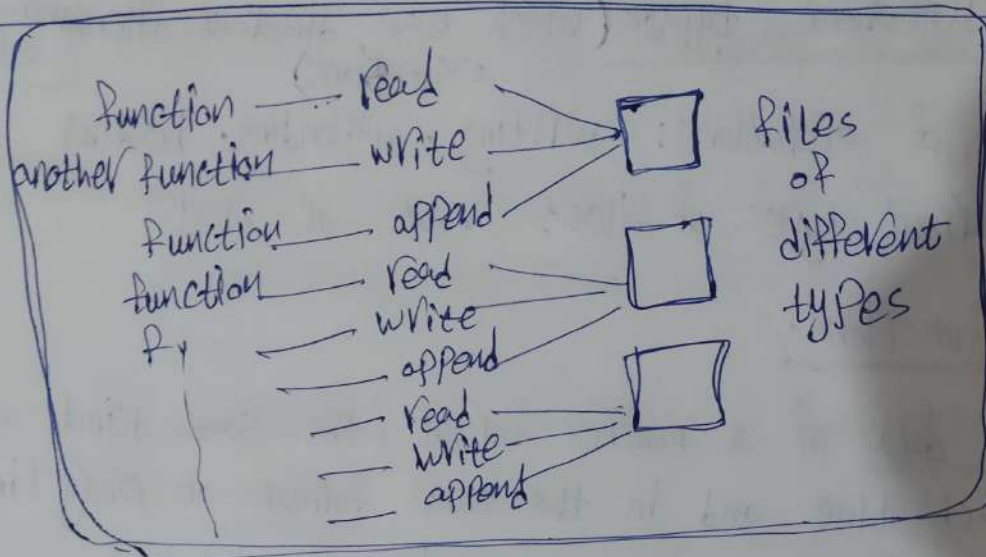 function read
another function write
function append
function read
write
append
read
write
append
files
of
different
types